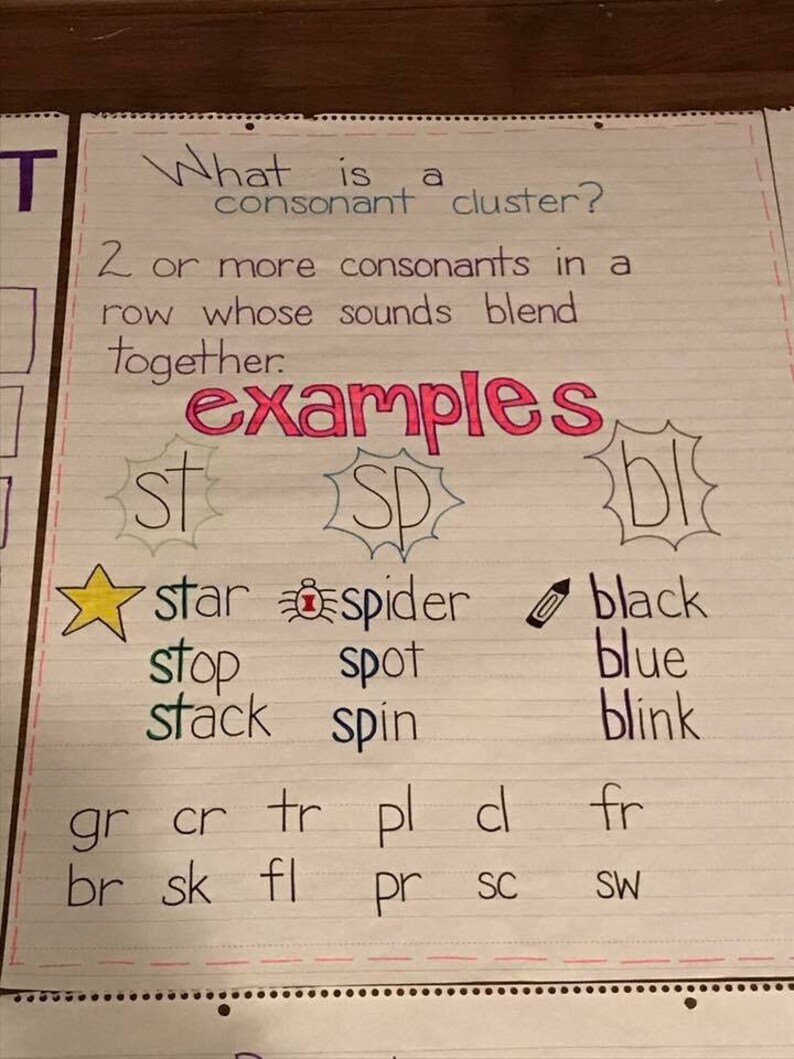 T
What is a
consonant cluster?
2 or more consonants in a
row whose sounds blend
together.
examples
st sp bl
star spider black
stop spot blue
stack spin blink
gr cr tr pl cl fr
br sk fl pr sc sw